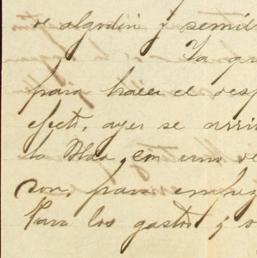 de algodon y semil
Ya qu
para hacer el resp
efecto, ayer se arri
la Mca, con una
son, para empez
Para los gastos y